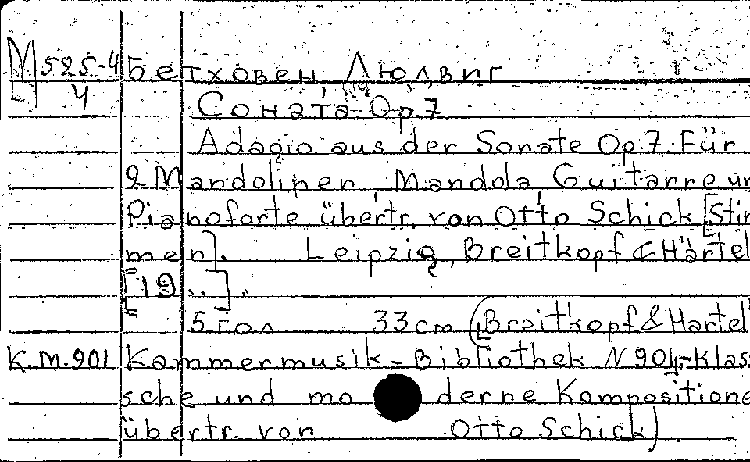 М 525-4 Бетховен, Людвиг
4 Соната Op 7
Adagio aus der Sonate Op 7. Für
2 Mandolinen, Mandola, Guitarre un
Pianoforte übertr. von Otto Schick [Stim
men]. Leipzig, Breitkopf & Härtel
[19..].
5 гол 33 cm (Breitkopf & Hartel
K.M. 901 Kammermusik-Bibliothek N 904,-Klas
sche und moderne Kompositione
übertr. von Otto Schick)